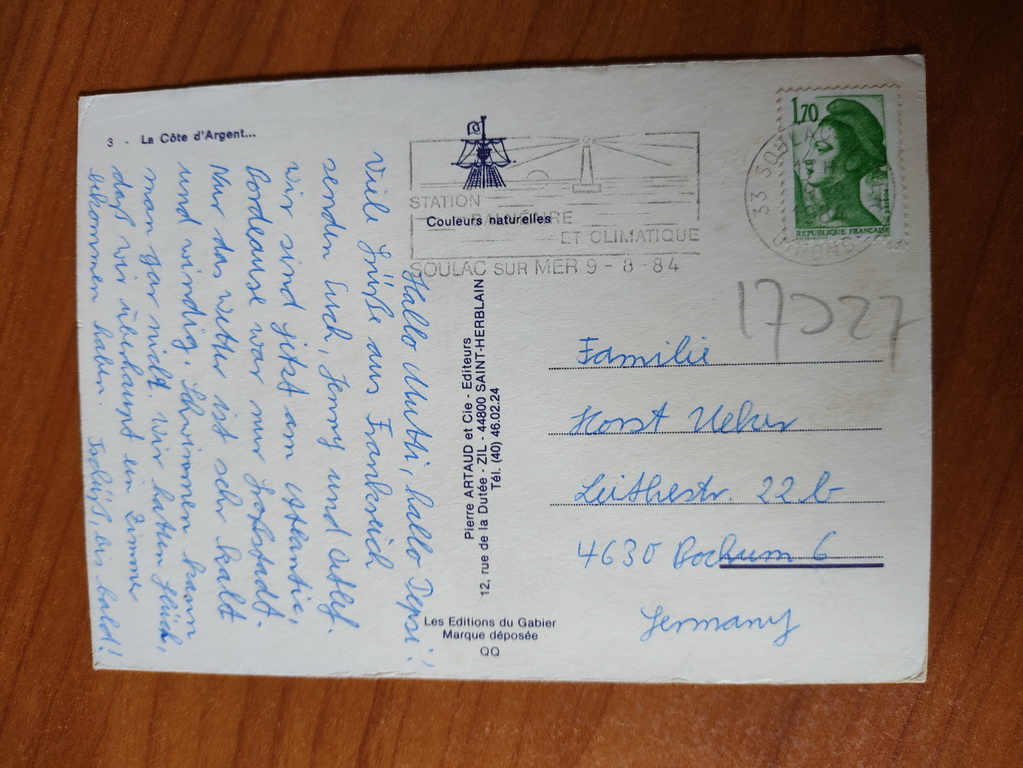 3 - La Côte d'Argent...
Hallo Mutti, hallo Depsi!
Viele Grüße aus Frankreich
senden Euch, Jenny und Detlef.
wir sind jetzt am Atlantic,
Bordeause war nur Großstadt.
Nur das Wetter ist sehr kalt
und windig. Schwimmen kann
man gar nicht. Wir hatten Glück,
daß wir überhaupt ein Zimmer
bekommen haben. Tschüß, bis bald!
Couleurs naturelles
STATION
BALNÉAIRE
ET CLIMATIQUE
SOULAC SUR MER 9 - 8 - 84
Pierre ARTAUD et Cie - Editeurs
12, rue de la Dutée - ZIL - 44800 SAINT-HERBLAIN
Tél. (40) 46.02.24
Les Editions du Gabier
Marque déposée
QQ
1,70
REPUBLIQUE FRANCAISE
33 SOULAC
GIRONDE
Familie
Horst
Leithestr. 22b
4630 Bochum 6
Germany